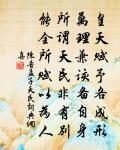 皇天賦予各成形
萬理兼該備自身
所謂天民非有別
能全所賦以為人
陳普孟子天民詩